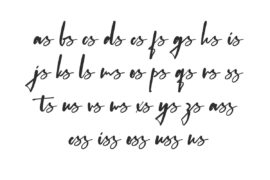 as bs cs ds es fs gs hs is
js ks ls ms os ps qs rs sz
ts us vs ws xs ys zs asz
esz isz osz usz us